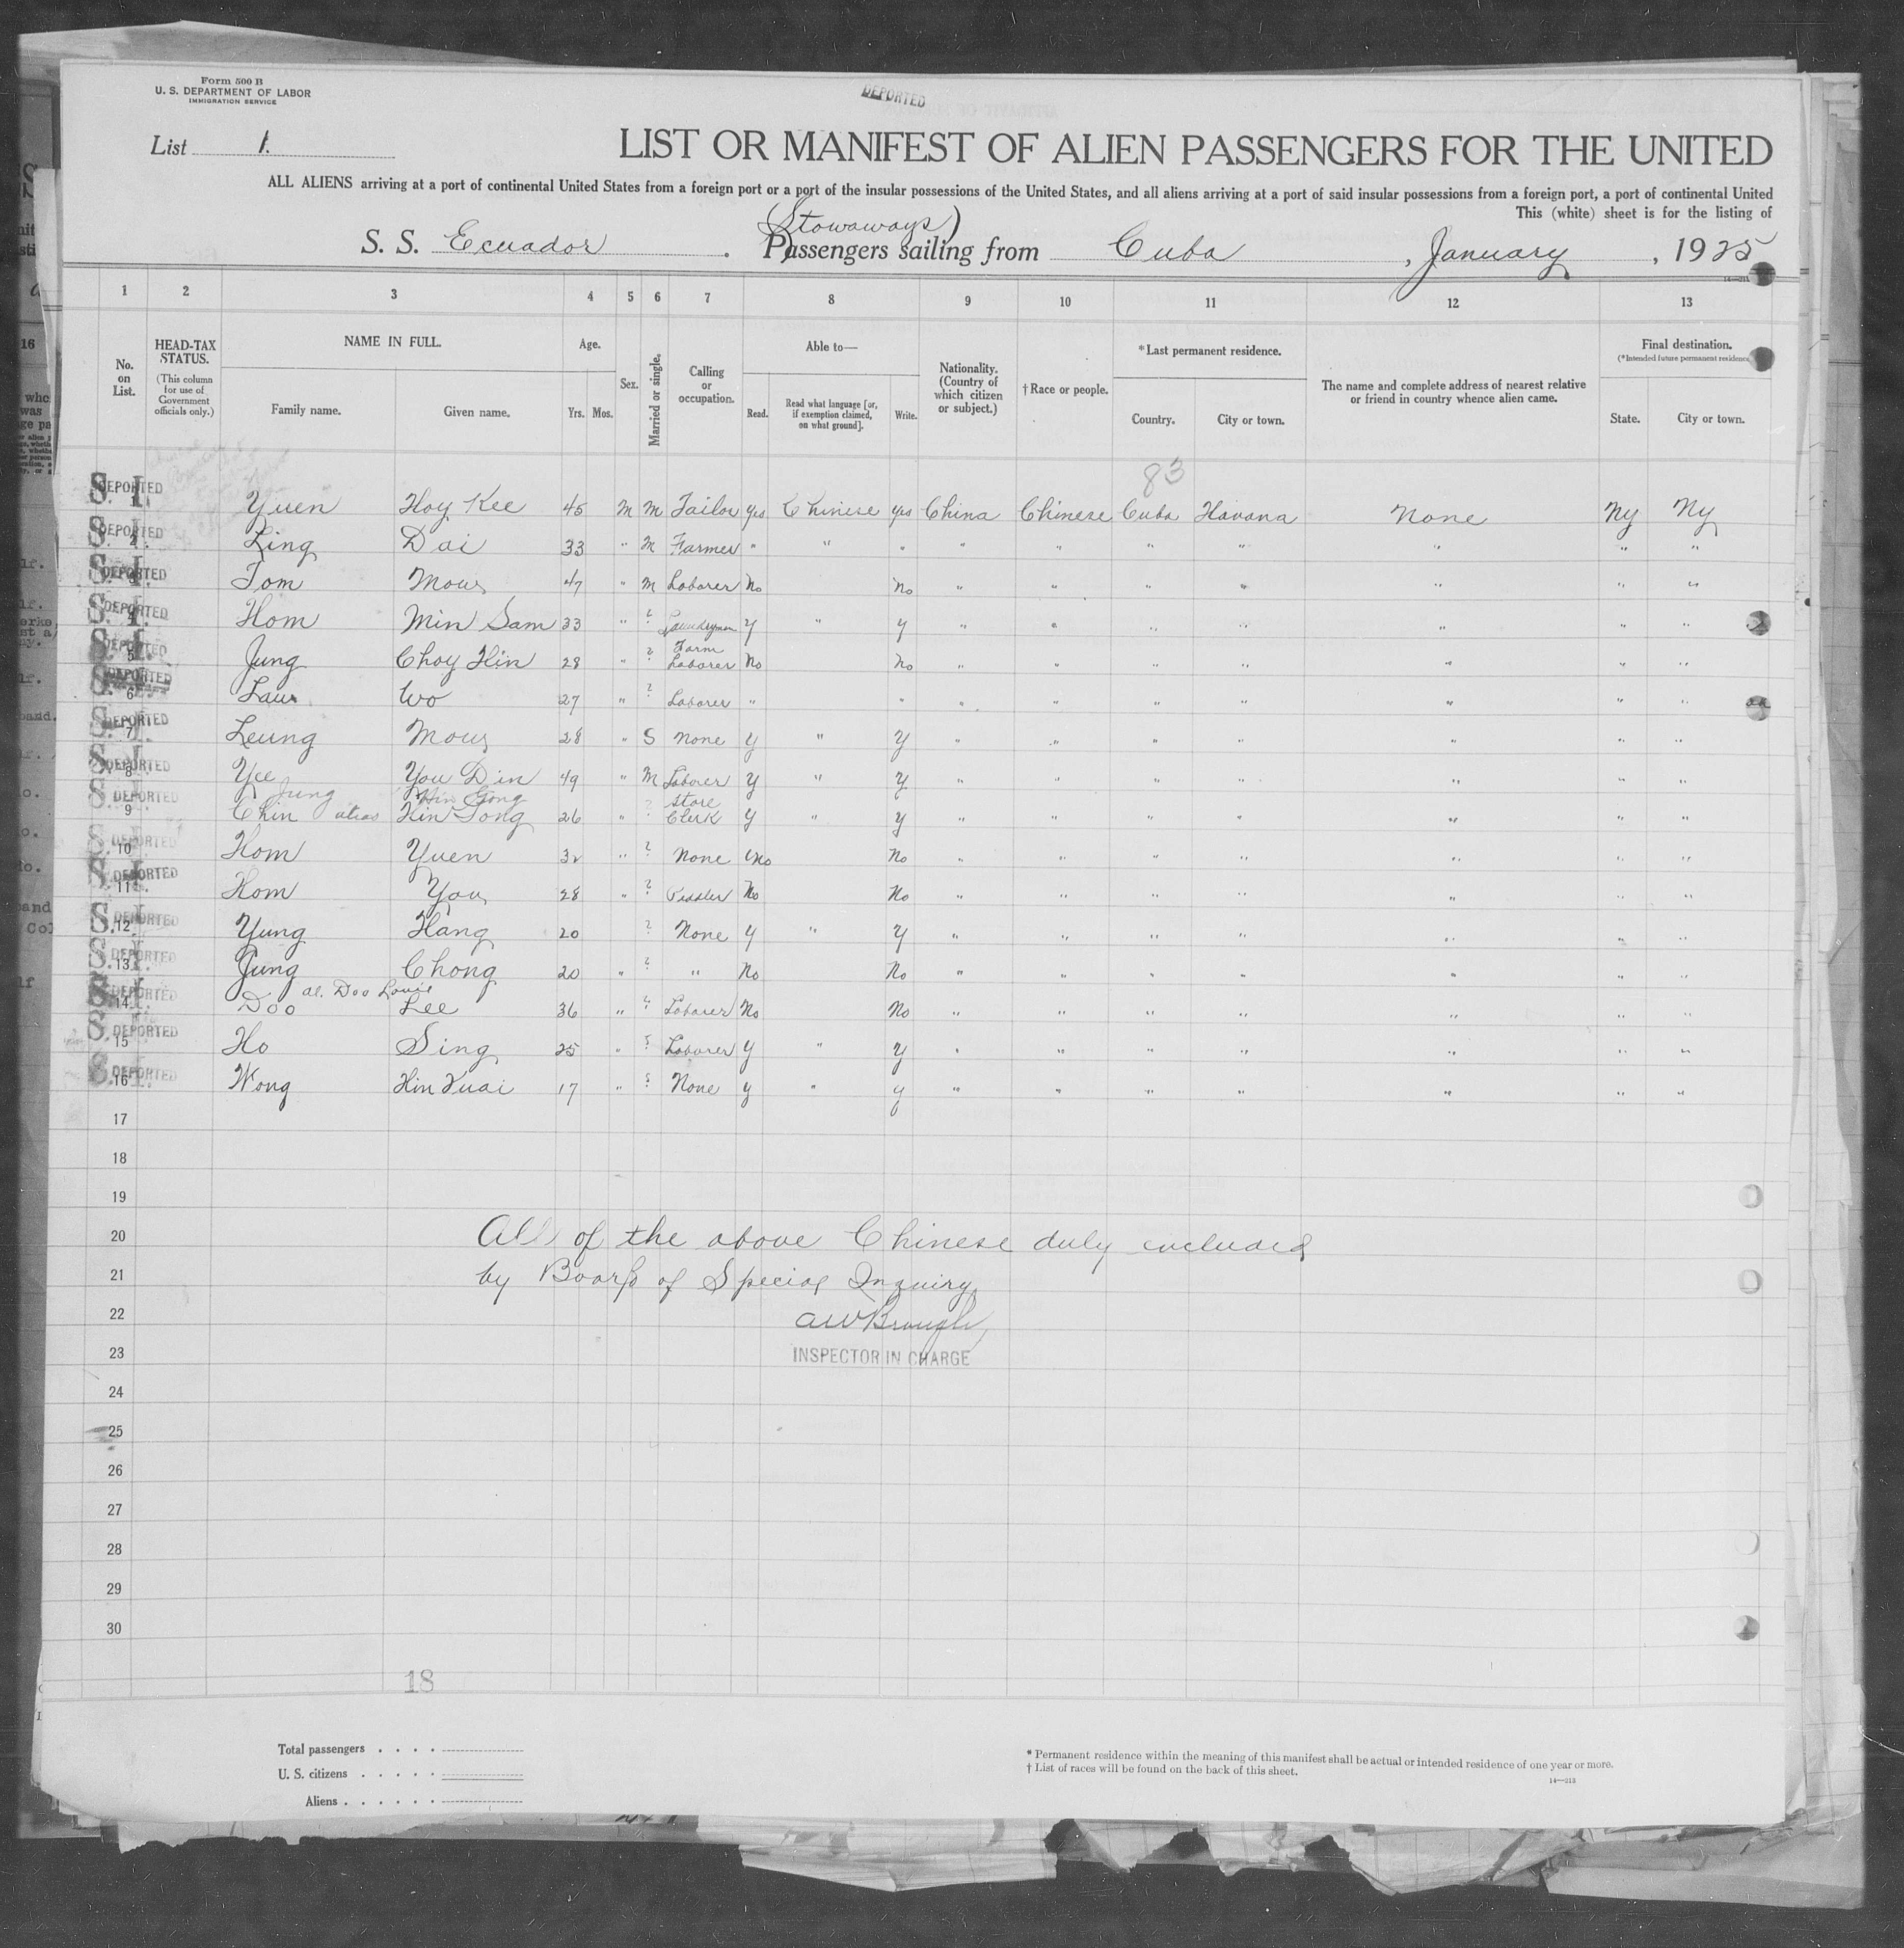 Form 500 B
U. S. DEPARTMENT OF LABOR
IMMIGRATION SERVICE
DEPORTED
List 1.
LIST OR MANIFEST OF ALIEN PASSENGERS FOR THE UNITED
ALL ALIENS arriving at a port of continental United States from a foreign port or a port of the insular possessions of the United States, and all aliens arriving at a port of said insular possessions from a foreign port, a port of continental United
This (white) sheet is for the listing of
(Stowaways)
S. S. Ecuador . Passengers sailing from Cuba , January , 1925
1 2 3 4 5 6 7 8 9 10 11 12 13
No. on List.
HEAD-TAX STATUS.
(This column for use of Government officials only.)
NAME IN FULL.
Family name. Given name.
Age.
Yrs. Mos.
Sex.
Married or single.
Calling or occupation.
Able to—
Read. Read what language [or, if exemption claimed, on what ground]. Write.
Nationality. (Country of which citizen or subject.)
†Race or people.
*Last permanent residence.
Country. City or town.
The name and complete address of nearest relative or friend in country whence alien came.
Final destination.
(*Intended future permanent residence
State. City or town.
83
S. I. DEPORTED 1 Yuen Hoy Kee 45 M M Tailor yes Chinese yes China Chinese Cuba Havana None Ny Ny
S. I. DEPORTED Ling Dai 33 " M Farmer " " " " " " " " " "
S. I. DEPORTED Tom Mow 47 " M Laborer No No " " " " " " "
S. I. DEPORTED 4 Hom Min Sam 33 " ? Laundryman y " y " " " " " " "
S. I. DEPORTED 5 Jung Choy Hin 28 " ? Farm Laborer No No " " " " " " "
S. I. DEPORTED 6 Lau Wo 27 " ? Laborer " " " " " " " " "
S. I. DEPORTED 7 Leung Mow 28 " S None y " y " " " " " " "
S. I. DEPORTED 8 Yee You Din 49 " M Laborer y " y " " " " " " "
Jung Hin Gong
S. I. DEPORTED 9 Chin alias Hin Gong 26 " ? Store Clerk y " y " " " " " " "
S. I. DEPORTED 10 Hom Yuen 32 " ? None No No " " " " " " "
S. I. DEPORTED 11 Hom You 28 " ? Peddler No No " " " " " "
S. I. DEPORTED 12 Yung Hang 20 ? None y " y " " " " " " "
S. I. DEPORTED 13 Jung Chong 20 " ? " No No " " " " " " "
al. Doo Louie
S. I. DEPORTED 14 Doo Lee 36 " ? Laborer No No " " " " " " "
S. I. DEPORTED 15 Ho Sing 25 " S Laborer y " y " " " " " " "
S. I. DEPORTED 16 Wong Hin Kuai 17 " S None y " y " " " " " " "
17
18
19
20 All of the above Chinese duly excluded
21 by Board of Special Inquiry
22 AW Brough
23 INSPECTOR IN CHARGE
24
25
26
27
28
29
30
18
Total passengers . . . .
U. S. citizens . . . . .
Aliens . . . . . .
* Permanent residence within the meaning of this manifest shall be actual or intended residence of one year or more.
† List of races will be found on the back of this sheet.
14—313